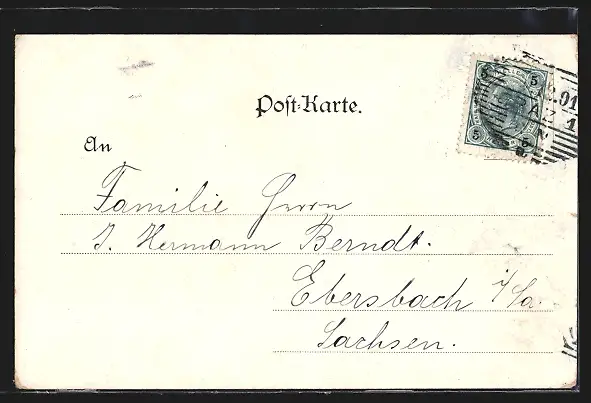 Post-Karte.
An
Familie Herrn
J. Hermann Berndt.
Ebersbach i/Sa.
Sachsen.
5 5
5 5
01
1